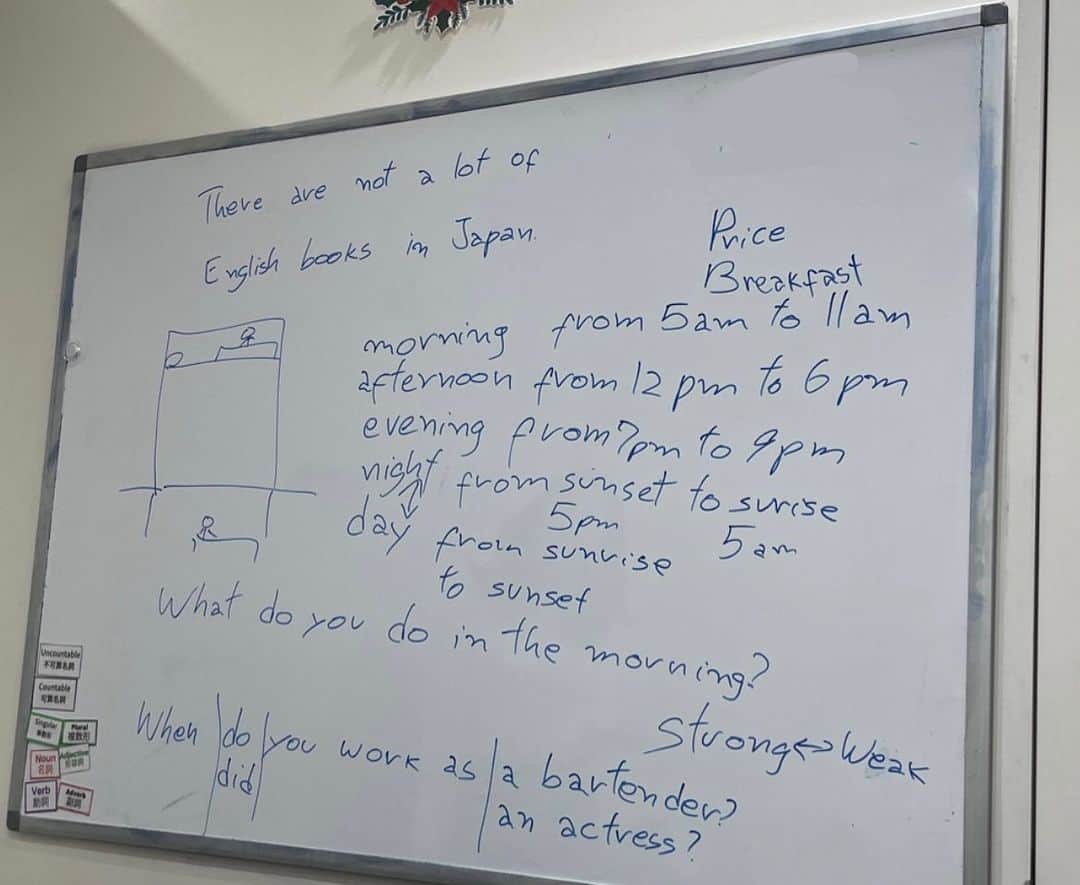 There are not a lot of
English books in Japan.
Price
Breakfast
morning from 5am to 11am
afternoon from 12 pm to 6 pm
evening from 7pm to 9pm
night from sunset to surise
5pm 5am
day from sunrise
to sunset
What do you do in the morning?
Strong↔Weak
When do you work as a bartender?
did an actress?
Uncountable
不可算名詞
Countable
可算名詞
Singular
単数形
Plural
複数形
Noun
名詞
Adjective
形容詞
Verb
動詞
Adverb
副詞